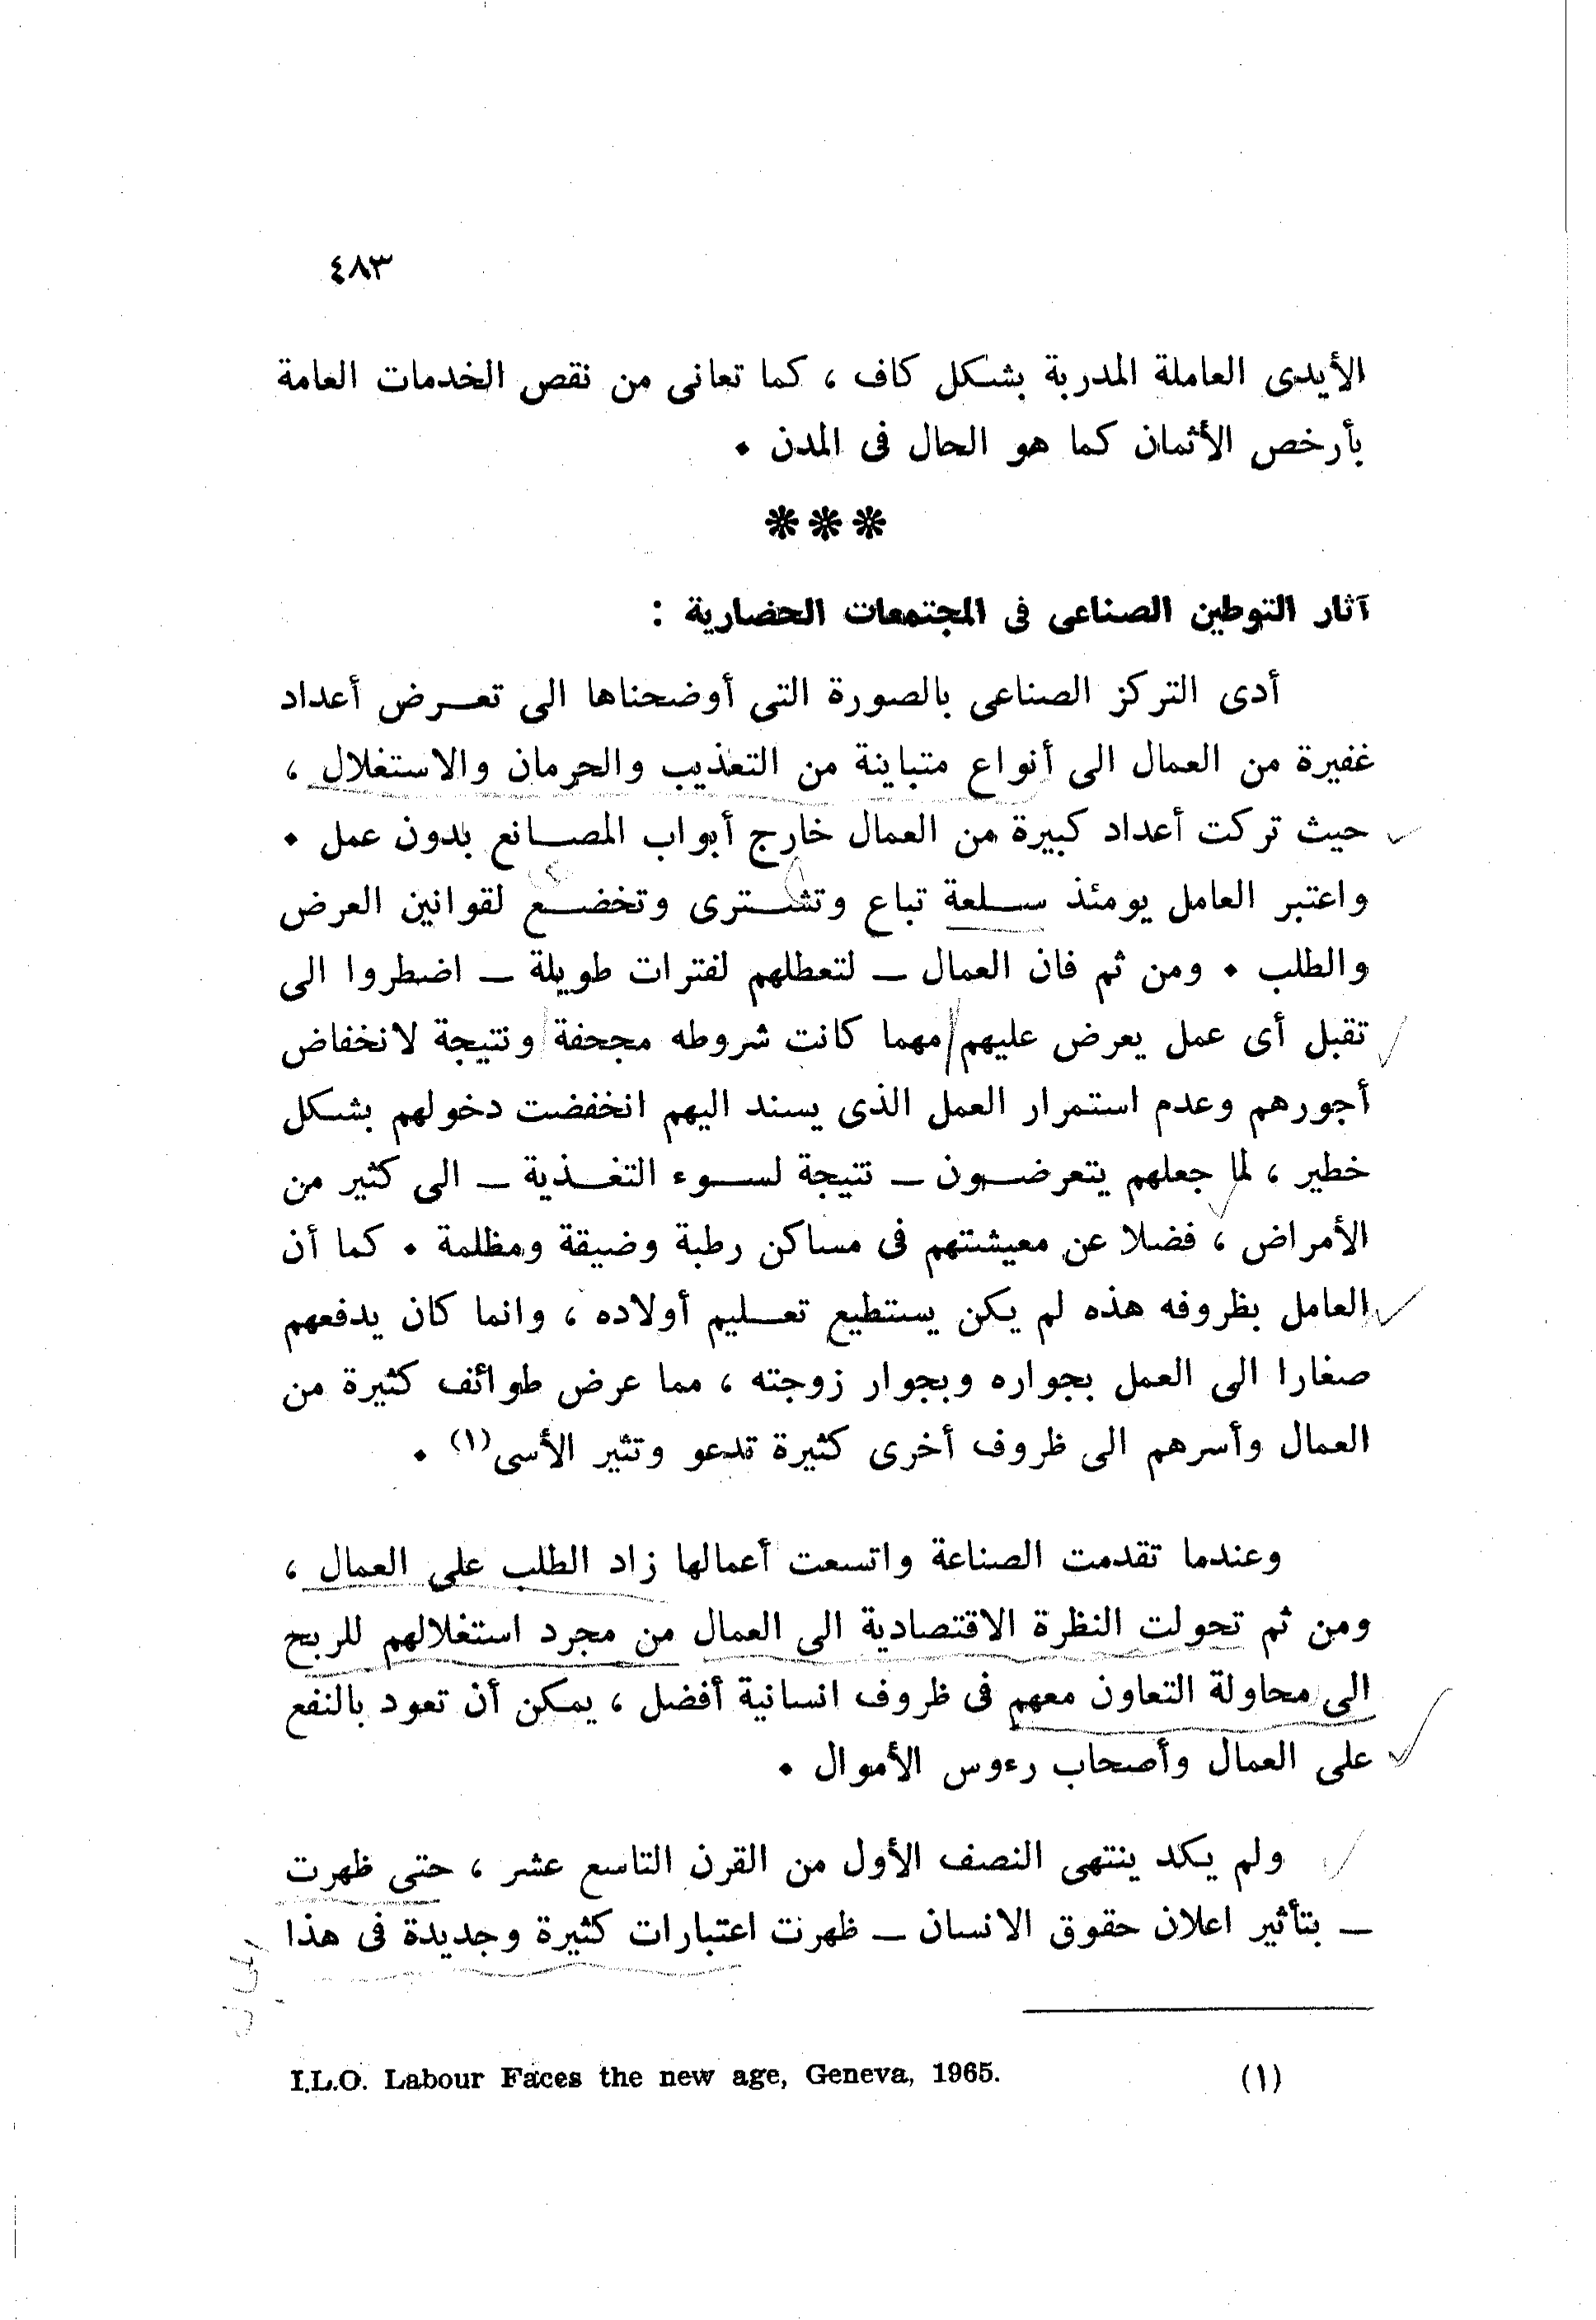 ٤٨٣
الأيدى العاملة المدربة بشكل كاف ، كما تعانى من نقص الخدمات العامة
بأرخص الأثمان كما هو الحال فى المدن ٠
❋❋❋
آثار التوطين الصناعى فى المجتمعات الحضارية :
أدى التركز الصناعى بالصورة التى أوضحناها الى تعرض أعداد
غفيرة من العمال الى أنواع متباينة من التعذيب والحرمان والاستغلال ،
حيث تركت أعداد كبيرة من العمال خارج أبواب المصانع بدون عمل ٠
واعتبر العامل يومئذ سلعة تباع وتشترى وتخضع لقوانين العرض
والطلب ٠ ومن ثم فان العمال – لتعطلهم لفترات طويلة – اضطروا الى
تقبل أى عمل يعرض عليهم مهما كانت شروطه مجحفة ونتيجة لانخفاض
أجورهم وعدم استمرار العمل الذى يسند اليهم انخفضت دخولهم بشكل
خطير ، لما جعلهم يتعرضون – نتيجة لسوء التغذية – الى كثير من
الأمراض ، فضلا عن معيشتهم فى مساكن رطبة وضيقة ومظلمة ٠ كما أن
العامل بظروفه هذه لم يكن يستطيع تعليم أولاده ، وانما كان يدفعهم
صغارا الى العمل بجواره وبجوار زوجته ، مما عرض طوائف كثيرة من
العمال وأسرهم الى ظروف أخرى كثيرة تدعو وتثير الأسى(١) ٠
وعندما تقدمت الصناعة واتسعت أعمالها زاد الطلب على العمال ،
ومن ثم تحولت النظرة الاقتصادية الى العمال من مجرد استغلالهم للربح
الى محاولة التعاون معهم فى ظروف انسانية أفضل ، يمكن أن تعود بالنفع
على العمال وأصحاب رءوس الأموال ٠
ولم يكد ينتهى النصف الأول من القرن التاسع عشر ، حتى ظهرت
– بتأثير اعلان حقوق الانسان – ظهرت اعتبارات كثيرة وجديدة فى هذا
(١) I.L.O. Labour Faces the new age, Geneva, 1965.